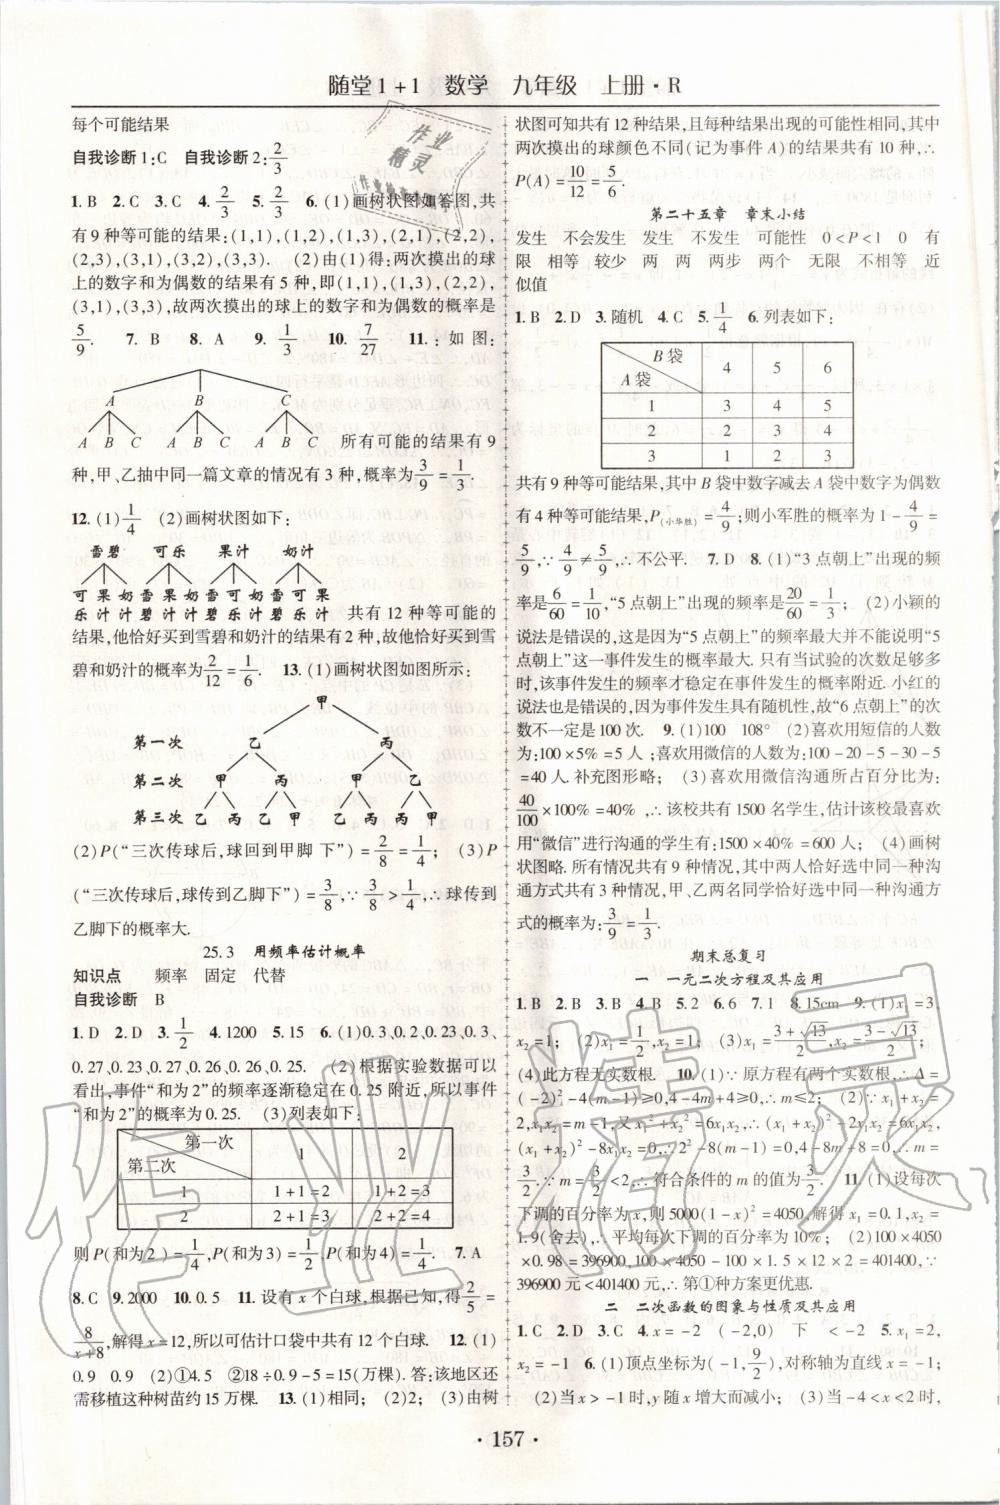 随堂1+1 数学 九年级 上册·R
每个可能结果
自我诊断1:C 自我诊断2:2/3
1.B 2.C 3.C 4.2/3 5.2/3 6.(1)画树状图如答图,共
有9种等可能的结果:(1,1),(1,2),(1,3),(2,1),(2,2),
(2,3),(3,1),(3,2),(3,3). (2)由(1)得:两次摸出的球
上的数字和为偶数的结果有5种,即(1,1),(1,3),(2,2),
(3,1),(3,3),故两次摸出的球上的数字和为偶数的概率是
5/9. 7.B 8.A 9.1/3 10.7/27 11.:如图:
A B C
A B C A B C A B C 所有可能的结果有9
种,甲、乙抽中同一篇文章的情况有3种,概率为3/9=1/3.
12.(1)1/4 (2)画树状图如下:
雪碧 可乐 果汁 奶汁
可果奶 雪果奶 雪可奶 雪可果
乐汁汁 碧汁汁 碧乐汁 碧乐汁 共有12种等可能的
结果,他恰好买到雪碧和奶汁的结果有2种,故他恰好买到雪
碧和奶汁的概率为2/12=1/6. 13.(1)画树状图如图所示:
甲
第一次 乙 丙
第二次 甲 丙 甲 乙
第三次 乙 丙 甲 乙 乙 丙 甲 丙
(2)P(“三次传球后,球回到甲脚 下”)=2/8=1/4; (3)P
(“三次传球后,球传到乙脚下”)=3/8,∵3/8>1/4,∴球传到
乙脚下的概率大.
25.3 用频率估计概率
知识点 频率 固定 代替
自我诊断 B
1.D 2.D 3.1/2 4.1200 5.15 6.(1)0.3,0.2,0.23,0.3,
0.27,0.23,0.27,0.26,0.26,0.25. (2)根据实验数据可以
看出,事件“和为2”的频率逐渐稳定在0.25附近,所以事件
“和为2”的概率为0.25. (3)列表如下:
第一次
第二次 1 2
1 1+1=2 1+2=3
2 2+1=3 2+2=4
则P(和为2)=1/4,P(和为3)=1/2,P(和为4)=1/4. 7.A
8.C 9.2000 10.0.5 11.设有x个白球,根据已知,得2/5=
8/(x+8),解得x=12,所以可估计口袋中共有12个白球. 12.(1)
0.9 0.9 (2)①4.5 ②18÷0.9-5=15(万棵).答:该地区还
需移植这种树苗约15万棵. 13.(1)相同; (2)2; (3)由树
状图可知共有12种结果,且每种结果出现的可能性相同,其中
两次摸出的球颜色不同(记为事件A)的结果共有10种,∴
P(A)=10/12=5/6.
第二十五章 章末小结
发生 不会发生 发生 不发生 可能性 0<P<1 0 有
限 相等 较少 两 两 两步 两个 无限 不相等 近
似值
1.B 2.D 3.随机 4.C 5.1/4 6.列表如下:
B袋
A袋 4 5 6
1 3 4 5
2 2 3 4
3 1 2 3
共有9种等可能结果,其中B袋中数字减去A袋中数字为偶数
有4种等可能结果,P(小华胜)=4/9;则小军胜的概率为1-4/9=
5/9,∵4/9≠5/9,∴不公平. 7.D 8.(1)“3点朝上”出现的频
率是6/60=1/10,“5点朝上”出现的频率是20/60=1/3; (2)小颖的
说法是错误的,这是因为“5点朝上”的频率最大并不能说明“5
点朝上”这一事件发生的概率最大. 只有当试验的次数足够多
时,该事件发生的频率才稳定在事件发生的概率附近.小红的
说法也是错误的,因为事件发生具有随机性,故“6点朝上”的次
数不一定是100次. 9.(1)100 108° (2)喜欢用短信的人数
为:100×5%=5人;喜欢用微信的人数为:100-20-5-30-5
=40人.补充图形略; (3)喜欢用微信沟通所占百分比为:
40/100×100%=40%,∴该校共有1500名学生,估计该校最喜欢
用“微信”进行沟通的学生有:1500×40%=600人; (4)画树
状图略.所有情况共有9种情况,其中两人恰好选中同一种沟
通方式共有3种情况,甲、乙两名同学恰好选中同一种沟通方
式的概率为:3/9=1/3.
期末总复习
一 一元二次方程及其应用
1.B 2.B 3.B 4.B 5.2 6.6 7.1 8.15cm 9.(1)x₁=3,
x₂=1; (2)x₁=1/2,x₂=1; (3)x₁=(3+√13)/2,x₂=(3-√13)/2;
(4)此方程无实数根. 10.(1)∵原方程有两个实数根,∴Δ=
(-2)²-4(m-1)≥0,4-4m+4≥0,∴m≤2; (2)∵x₁+x₂=
2,x₁x₂=m-1,又x₁²+x₂²=6x₁x₂,∴(x₁+x₂)²-2x₁x₂=6x₁x₂,
(x₁+x₂)²-8x₁x₂=0,∴2²-8(m-1)=0,4-8m+8=0,∴m=
3/2.∵m=3/2<2,∴符合条件的m的值为3/2. 11.(1)设每次
下调的百分率为x,则5000(1-x)²=4050,解得x₁=0.1,x₂=
1.9(舍去),∴平均每次下调的百分率为10%; (2)100×4050
×0.98=396900,100×4050-100×1.5×12×2=401400,∵
396900元<401400元,∴第①种方案更优惠.
二 二次函数的图象与性质及其应用
1.C 2.D 3.C 4.x=-2 (-2,0) 下 <-2 5.x₁=2,
x₂=-1 6.(1)顶点坐标为(-1,9/2),对称轴为直线x=-1;
(2)当x>-1时,y随x增大而减小; (3)当-4<x<2时,
·157·
作业精灵